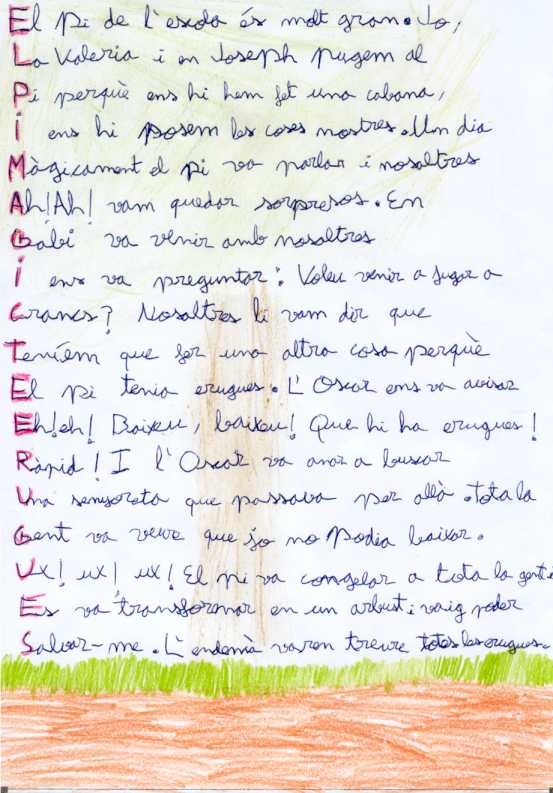 El pi de l'escola és molt gran. Jo,
La Valeria i en Joseph pugem al
Pi perquè ens hi hem fet una cabana,
i ens hi posem les coses nostres. Un dia
Màgicament el pi va parlar i nosaltres
Ah! Ah! vam quedar sorpresos. En
Gabi va venir amb nosaltres
i ens va preguntar: Voleu venir a jugar a
Crancs? Nosaltres li vam dir que
Teníem que fer una altra cosa perquè
El pi tenia erugues. L'Oscar ens va avisar
Eh! eh! Baixeu, baixeu! Que hi ha erugues!
Ràpid! I l'Oscar va anar a buscar
Una senyoreta que passava per allà. Tota la
Gent va veure que jo no podia baixar.
Ux! ux! ux! El pi va congelar a tota la gent i
Es va transformar en un arbust i vaig poder
Salvar-me. L'endemà varen treure totes les erugues.